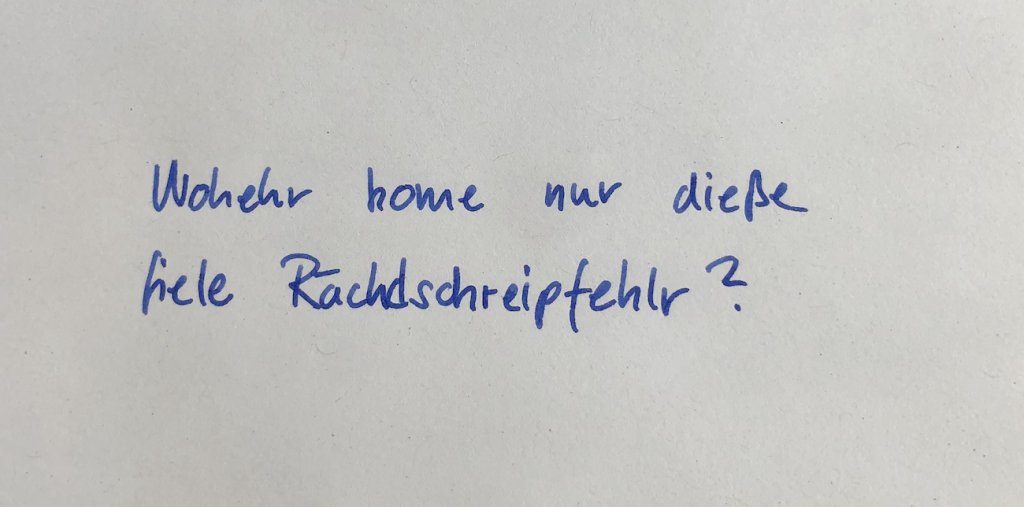 Wohehr kome nur dieße
fiele Rächdschreipfehlr?